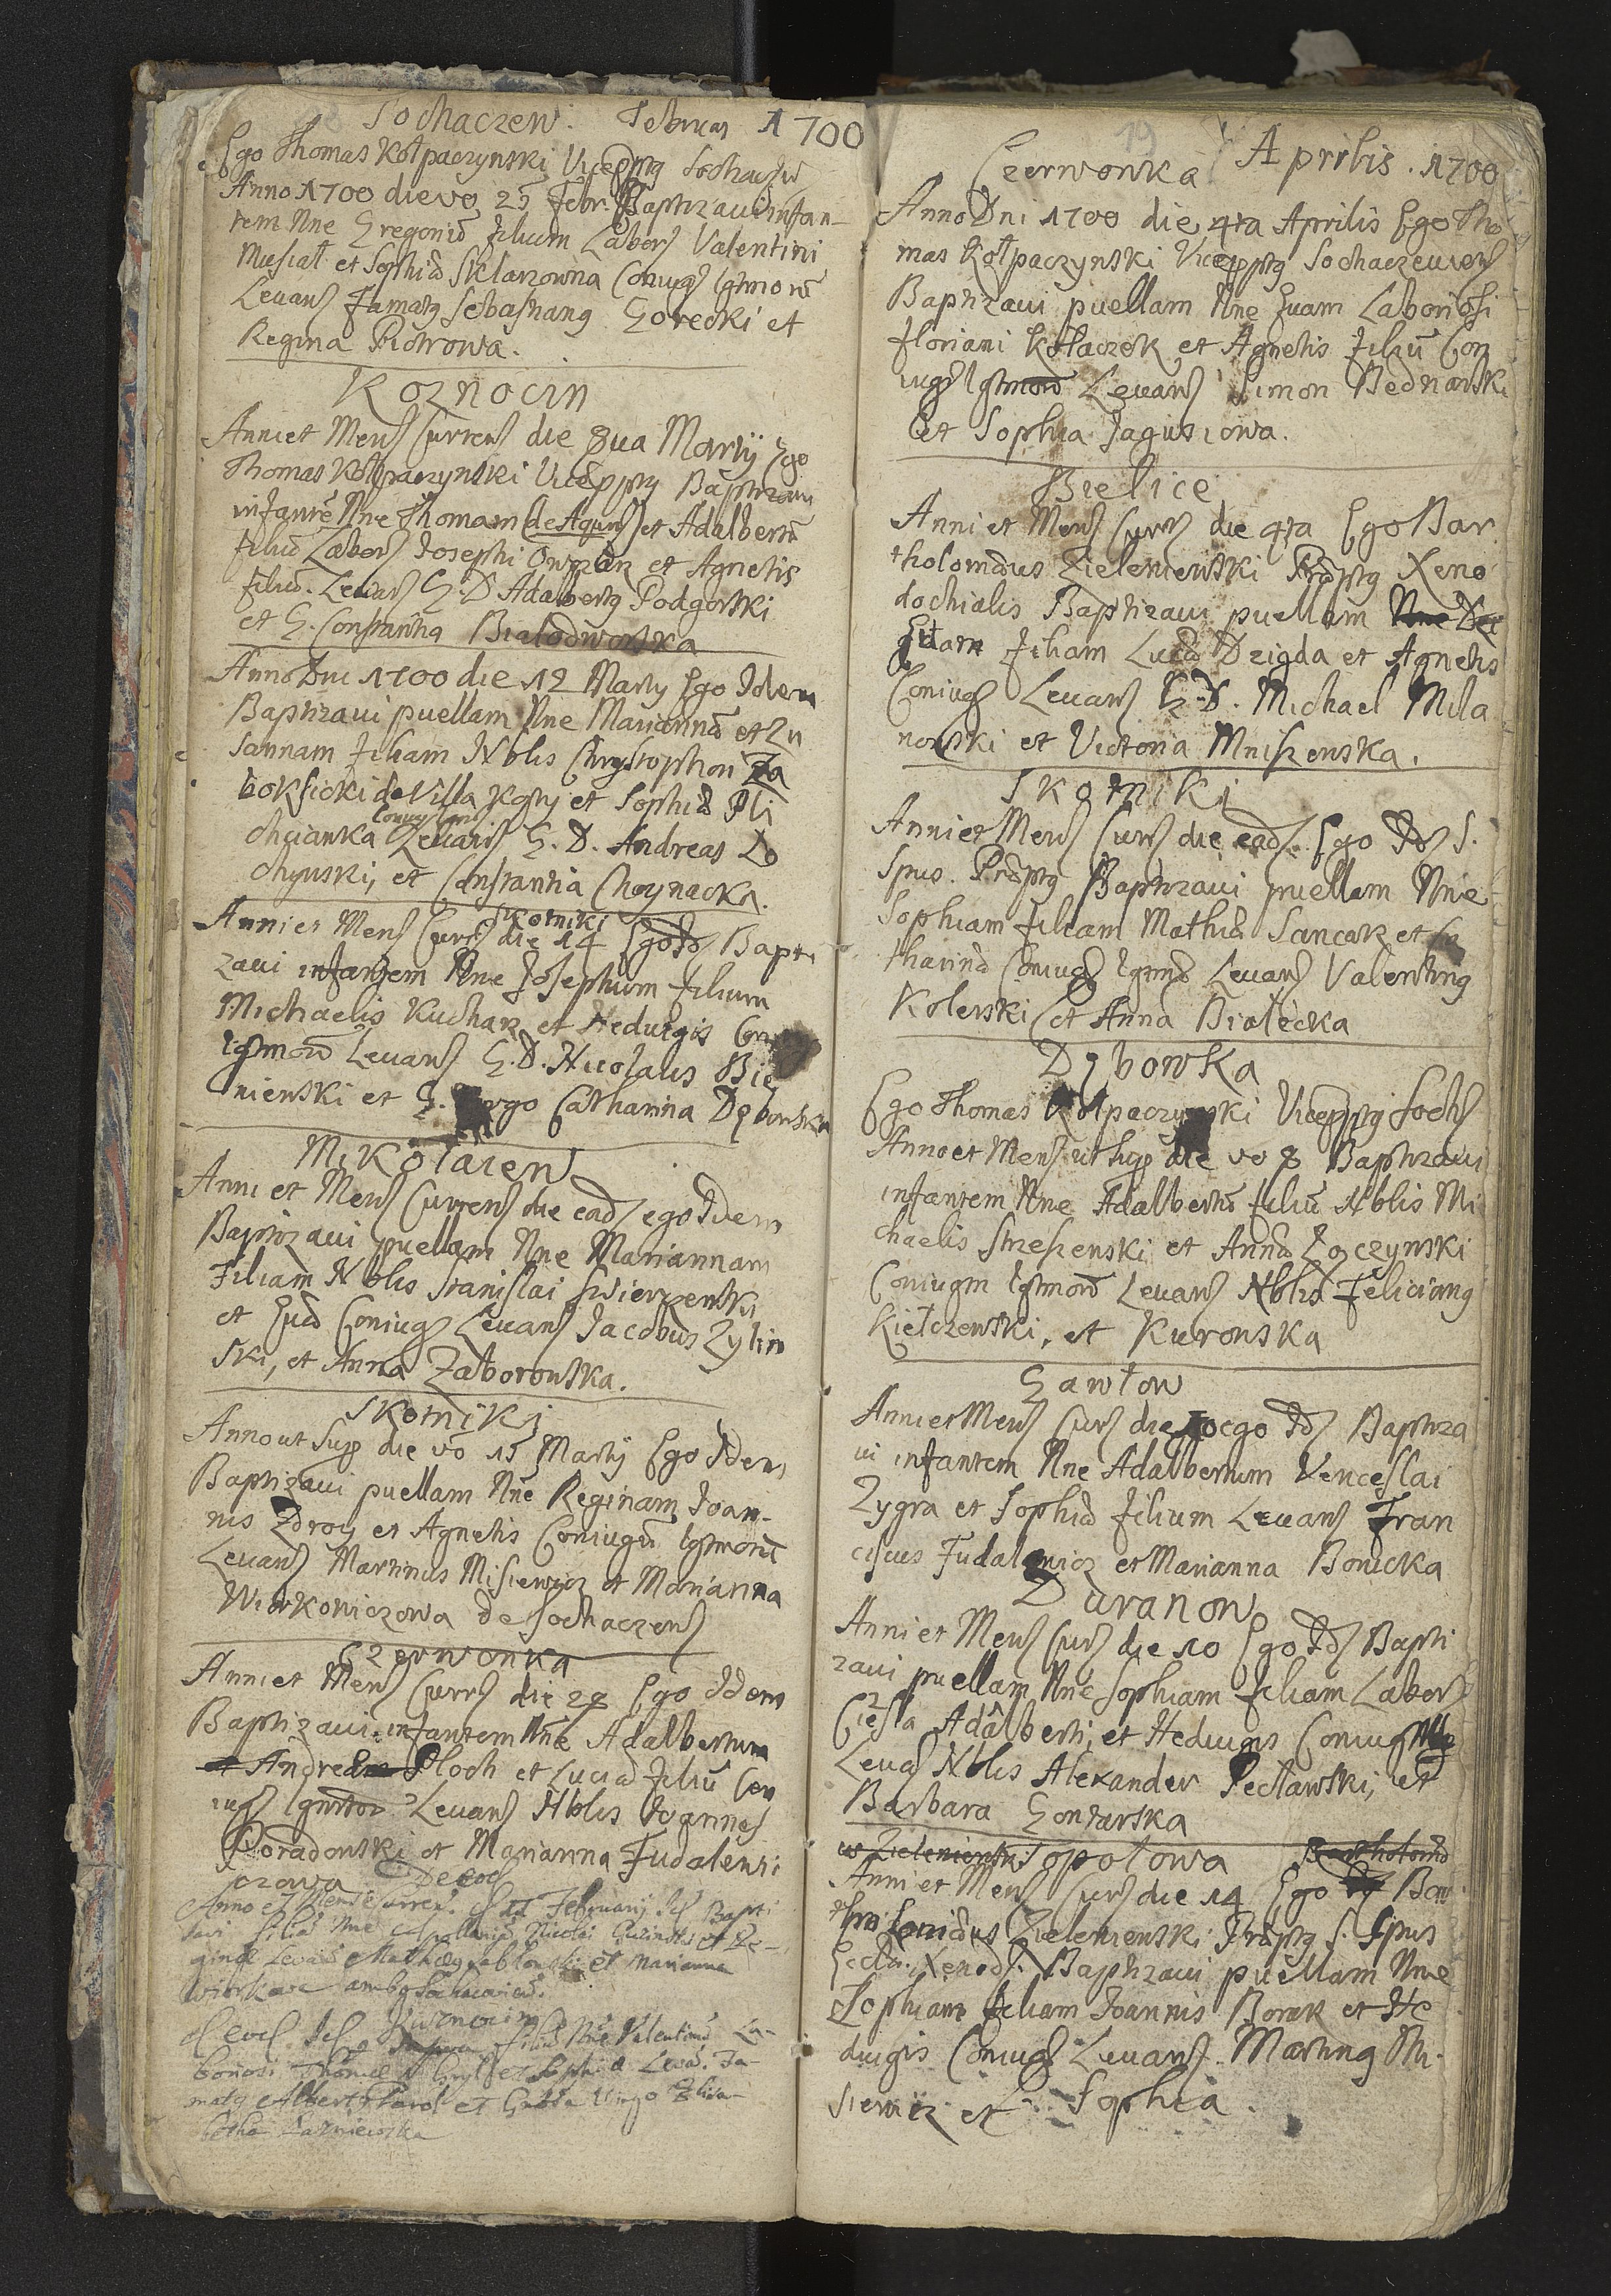 Sochaczew. Februar 1700
Ego Thomas Kołpaczynski Viceppts Sochacżw
Anno 1700 die vo 25 Febr. Baptizaui infan-
tem Nne Gregoriū filium Labor Valentini
Musiał et Sophiæ Sklarzowna Coniug lgtmorū
Levans Famats Sebastians Gorecki et
Regina Piotrowa.
Koznocin
Anni et Mens Currens die 8ua Martij Ego
Thomas Kołpaczynski Viceppts Baptizaui
infantē Nne Thomam (de Aquin) et Adalbertū
filiū Labors Josephi Owczarz et Agnetis
filiū. Levans G. D Adalberts Podgorski
et G. Constantia Białodworska
Anno Dni 1700 die 12 Martij Ego Idem
Baptizaui puellam Nne Mariannā et Zu
sannam filiam Nblis Chrystophori Za
boksicki de Villa Kąty et Sophiæ Pli
chcianka Coniug lgtmor Levans G. D. Andreas Lo
chynski, et Constantia Choynacka.
Skotniki
Anni et Mens Currs die 14 Ego Id Bapti
zaui infantem Nne Josephum filium
Michaelis Kucharz et Heduigis Con
lgtmorū Levans G. D. Nicolaus Bie
niewski et G. Virgo Catharina Dębowska
Mikołaiew
Anni et Mens Currens die ead ego Idem
Baptizaui puellam Nne Mariannam
Filiam Nblis Stanislai Swierzewski
et Evæ Coniug Levans Jacobus Zylin
ski, et Anna Zaborowska.
Skotniki
Anno ut Sup die vo 15 Martij Ego Idem
Baptizaui puellam Nne Reginam Joan-
nis Zdroy et Agnetis Coniugū lgtmorū
Levans Martinus Misiewicz et Marianna
Wiorkowiczowa de Sochaczew
Czerwonka
Anni et Mens Currs die 28 Ego Idem
Baptizaui infantem Nne Adalbertum
et Andream Ploch et Luciæ filiū Con
iug lgmtor Levans Nblis Joannes
Poradowski et Marianna Fudalewi
czowa Deeod
Anno et Mense curren. d 11 Februarij Id Bapti
savi filiā Nne Apolloniā Nicolai Guzinski et Re-
ginæ Levans Mathæus Jabłonski et Marianna
Wiorkowa ambo Sochacovien.
Kuznocin
d eod Id filiū Nne Valentinū La-
boriosi Thomæ et Sophiæ Levā. Fa-
mats Alberts Karol et Gnsa Virgo Eliza-
betha Łazniewska
Czerwonka Aprilis. 1700
19
Anno Dni 1700 die 4ta Aprilis Ego Tho
mas Kołpaczynski Viceppts Sochaczeuien
Baptizaui puellam Nne Euam Laboriosi
Floriani Kołaczek et Agnetis filiū Con
iug lgtmorū Levans Simon Bednarski
et Sophia Jagusiowa.
Bielice
Anni et Mens Currs die 4ta Ego Bar
tholomæus Zieleniewski Præpts Xeno
dochialis Baptizaui puellam Nne Dei
Gitam filiam Lucæ Dzigda et Agnetis
Coniug Levans G. D. Michael Mila
nowski et Victoria Mniszewska.
Skotniki
Anni et Mens Curs die ead. Ego Id S.
Spus. Præpts Baptizaui puellam Nne
Sophiam filiam Mathiæ Sancarz et Ca
tharinæ Coniug lgtmæ Levans Valentins
Kolerski et Anna Białecka
Dębowka
Ego Thomas Kołpaczynski Viceppts Soch
Anno et Mens ut sup die vo 8 Baptizaui
infantem Nne Adalbertū filiū Nblis Mi
chaelis Strzeszewski et Annæ Łączynski
Coniugm lgtmorū Levans Nblis Felicians
Kiełczewski, et Kurowska
Gawłow
Anni et Mens Curs die 10 ego Id Baptiza
ui infantem Nne Adalbertum Venceslai
Zygra et Sophiæ filium Levans Fran
ciscus Fudalewicz et Marianna Bonicka
Duranow
Anni et Mens Curs die 10 Ego Id Bapti
zaui puellam Nne Sophiam filiam Labors
Ciesla Adalberti, et Heduigis Coniug
Levas Nblis Alexander Pecławski, et
Barbara Gontarska
us Zieleniewski Topołowa Bartholomæ
Anni et Mens Curs die 14 Ego Id Bar
tholomæus Zieleniewski Præpts S. Spus
Eccla. Xenod. Baptizaui puellam Nne
Sophiam filiam Joannis Borak et He
duigis Coniug Levans. Martins Mi-
siewicz et Sophia.